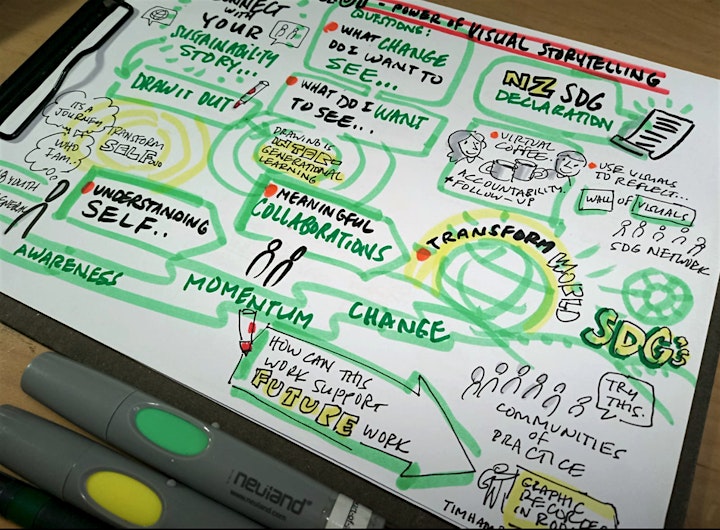 CONNECT
WITH
YOUR
SUSTAINABILITY
STORY...
DRAW IT OUT
- POWER OF VISUAL STORYTELLING
QUESTIONS:
WHAT CHANGE
DO I WANT TO
SEE...
WHAT DO I WANT
TO SEE...
NZ SDG
DECLARATION
IT'S A
JOURNEY
WHO
I AM?
TRANSFORM
SELF
DRAWING IS
INTER-
GENERATIONAL
LEARNING
VIRTUAL
COFFEE
ACCOUNTABILITY
FOLLOW-UP
USE VISUALS
TO REFLECT...
WALL OF VISUALS
SDG NETWORK
YOUTH
UNDERSTANDING
SELF..
MEANINGFUL
COLLABORATIONS
TRANSFORM
WORLD
AWARENESS
MOMENTUM
CHANGE
SDG's
HOW CAN THIS
WORK SUPPORT
FUTURE WORK
TRY
THIS.
COMMUNITIES
OF
PRACTICE
GRAPHIC
neuland
www.neuland.com